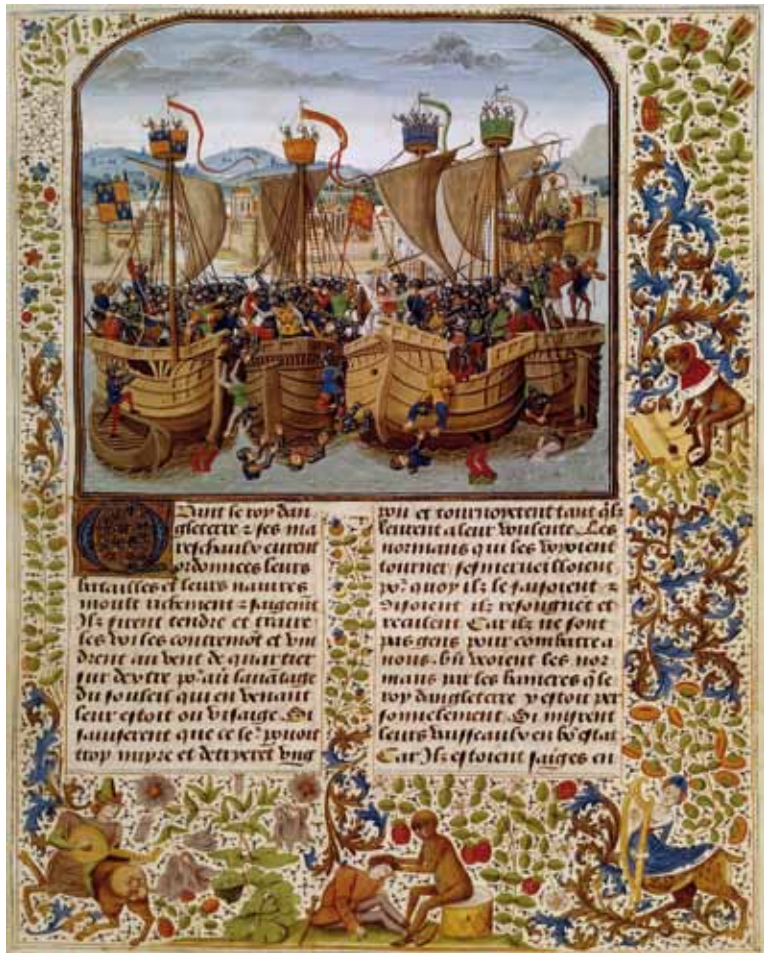 Quant le roy dan
gleterre & ses ma
reschaulx eurent
ordonnees leurs
batailles et leurs navires
moult richement & saigemt
Ilz firent tendre et traire
les voiles contremot et vin
drent au vent de quartier
sur dextre por avoir lavatage
du souleil qui en venant
leur estoit ou visaige. Si
sauiserent que ce les pouoit
trop nuyre et detryeret ung
pou et tournoyerent tant qlz
leurent a leur voulente. Les
normans qui les veoient
tourner sesmerveilloient
por quoy ilz le faisoient &
disoient ilz resoignet et
reculent Car ilz ne sont
pas gens pour combatre a
nous. bn veoient les nor
mans par les banieres q le
roy dangleterre y estoit per
sonnelement. Si misrent
leurs vaisseaulx en bo estat
Car Ilz estoient saiges en